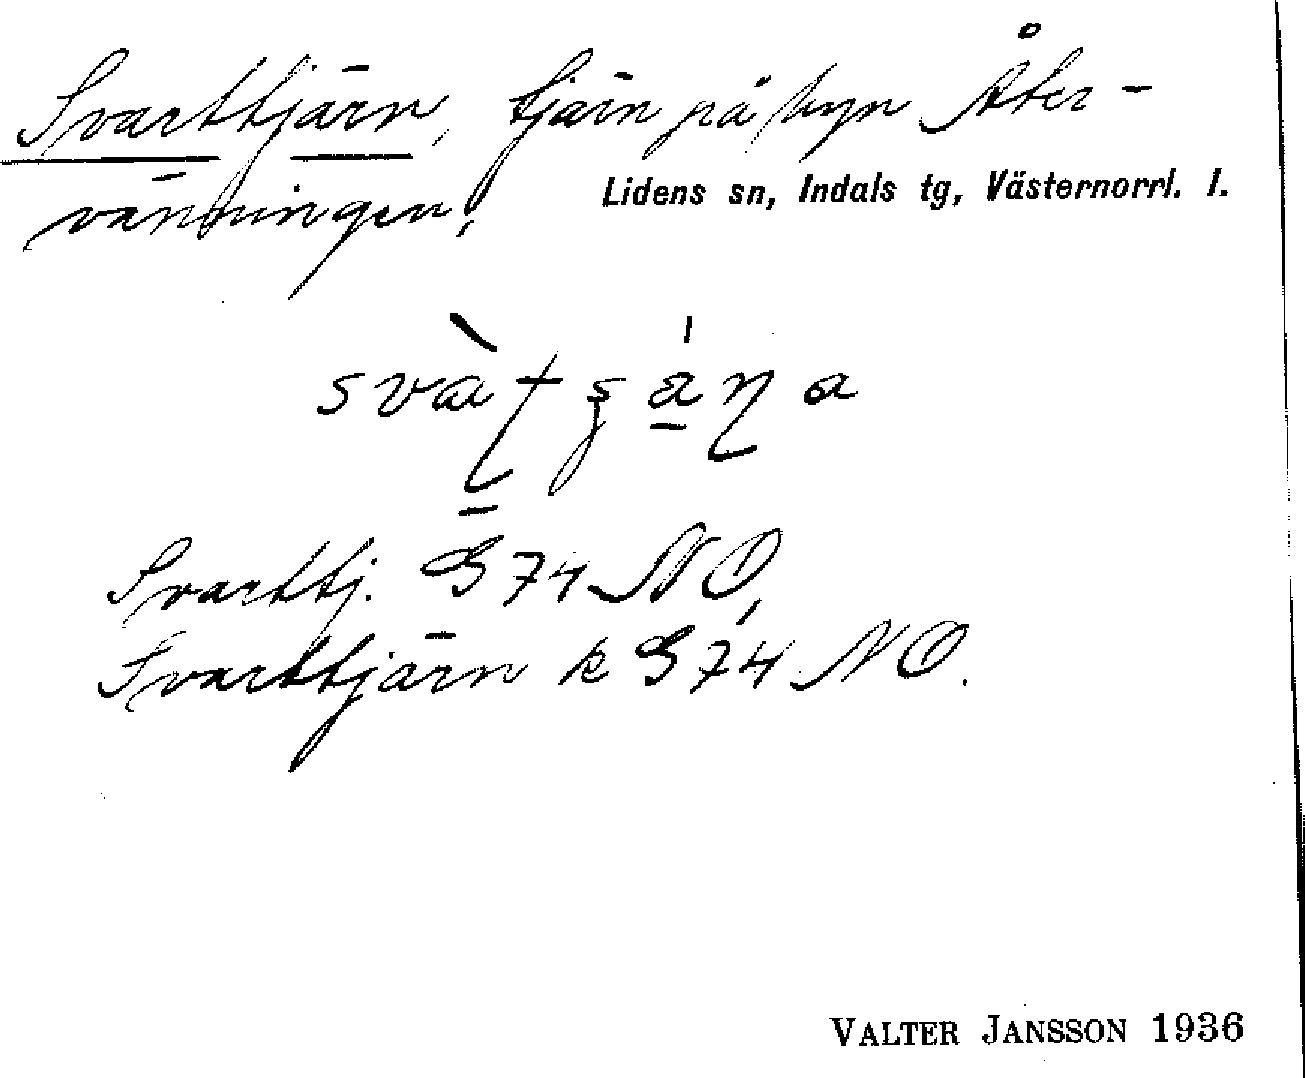 Svarttjärn, tjärn på byn Åter-
vänningen,
Lidens sn, Indals tg, Västernorrl. l.
Svarttj. G 74 NO,
Svarttjärn k G 74 NO.
VALTER JANSSON 1936